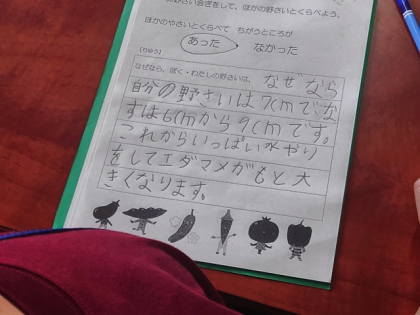 の野さい会ぎをして、ほかの野さいとくらべよう。
ほかのやさいとくらべて ちがうところが
あった なかった
【りゆう】
なぜなら、ぼく・わたしの野さいは、なぜなら
自分の野さいは7cmで、な
すは6cmから9cmです。
これからいっぱい水やり
をしてエダマメがもと大
きくなります。